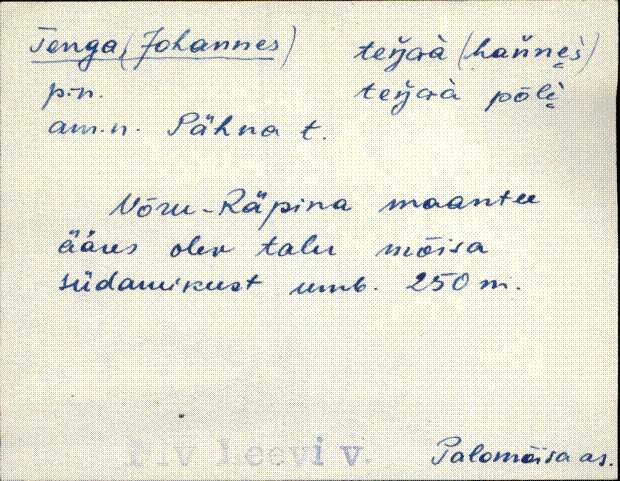 Tenga (Johannes) teŋɢà (hańńes̀)
p.-n. teŋɢà põlì
am.n. Pähna t.
Võru-Räpina maantee
ääres olev talu mõisa
südamikust umb. 250 m.
Plv Leevi v. Palomõisa as.